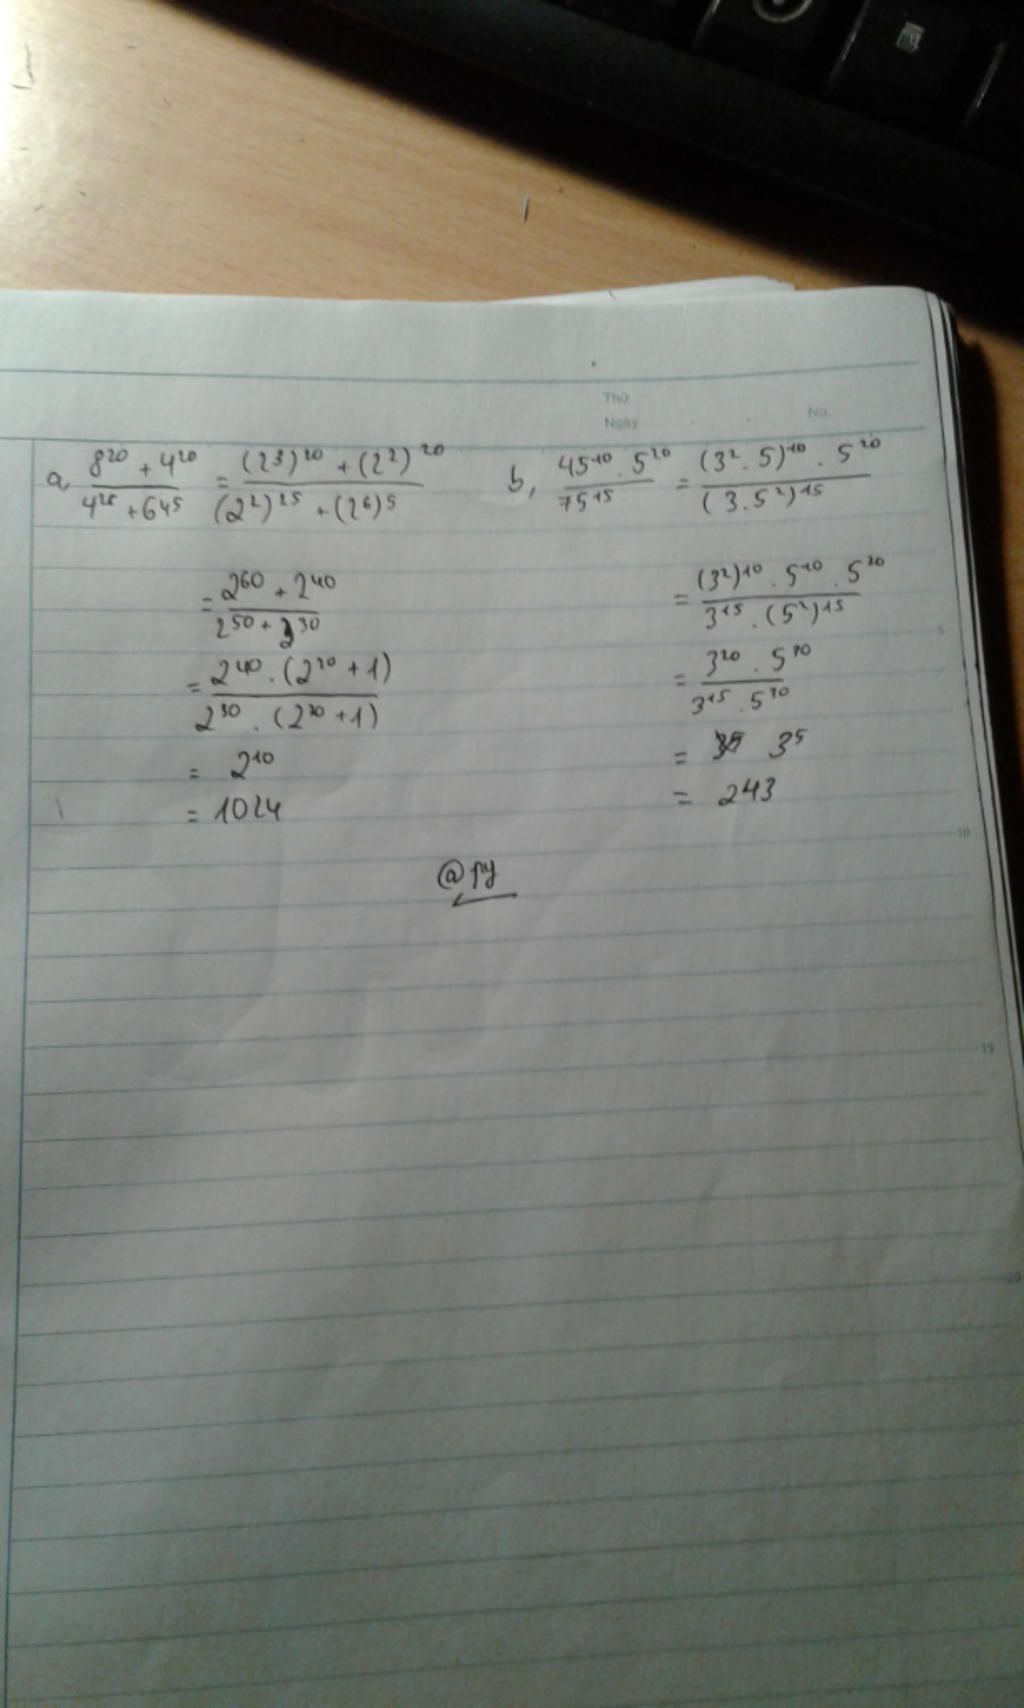 Thứ
Ngày No.
a, 8²⁰ + 4²⁰ / 4²⁵ + 64⁵ = (2³)²⁰ + (2²)²⁰ / (2²)²⁵ + (2⁶)⁵
= 2⁶⁰ + 2⁴⁰ / 2⁵⁰ + 2³⁰
= 2⁴⁰ . (2²⁰ + 1) / 2³⁰ . (2²⁰ + 1)
= 2¹⁰
= 1024
b, 45¹⁰ . 5²⁰ / 75¹⁵ = (3² . 5)¹⁰ . 5²⁰ / (3 . 5²)¹⁵
= (3²)¹⁰ . 5¹⁰ . 5²⁰ / 3¹⁵ . (5²)¹⁵
= 3²⁰ . 5³⁰ / 3¹⁵ . 5³⁰
= 3⁵
= 243
@py
5
10
15
20